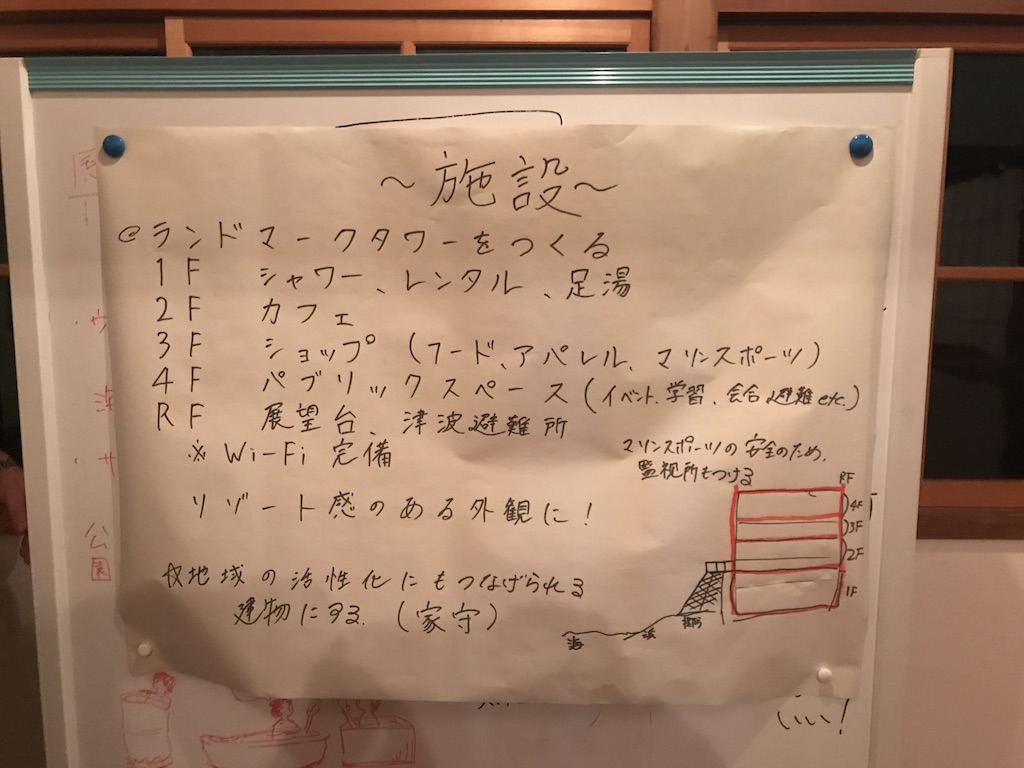 ～施設～
@ランドマークタワーをつくる
1F シャワー、レンタル、足湯
2F カフェ
3F ショップ (フード、アパレル、マリンスポーツ)
4F パブリックスペース (イベント、学習、会合、避難etc.)
RF 展望台、津波避難所
※ Wi-Fi 完備
マリンスポーツの安全のため、
監視所もつける
リゾート感のある外観に!
地域の活性化にもつなげられる
建物にする。(家守)
RF
4F
3F
2F
1F
海
浜
公園
いい!